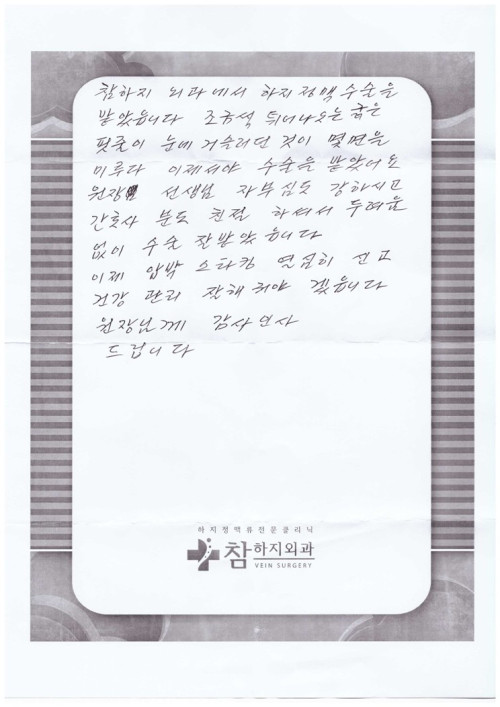 참하지 외과에서 하지정맥수술을
받았읍니다 조금석 튀너나오는 굵은
핏줄이 눈에 거슬리던 것이 몇면을
미루다 이제서야 수술을 받았어요
원장님 선생님 자부심도 강하시고
간호사 분도 친절 하셔서 두려움
없이 수술 잘받았읍니다
이제 압박 스타킹 열심히 신고
건강 관리 잘해줘야 겠읍니다
원장님께 감사인사
드립니다
하지정맥류전문클리닉
참하지외과
VEIN SURGERY